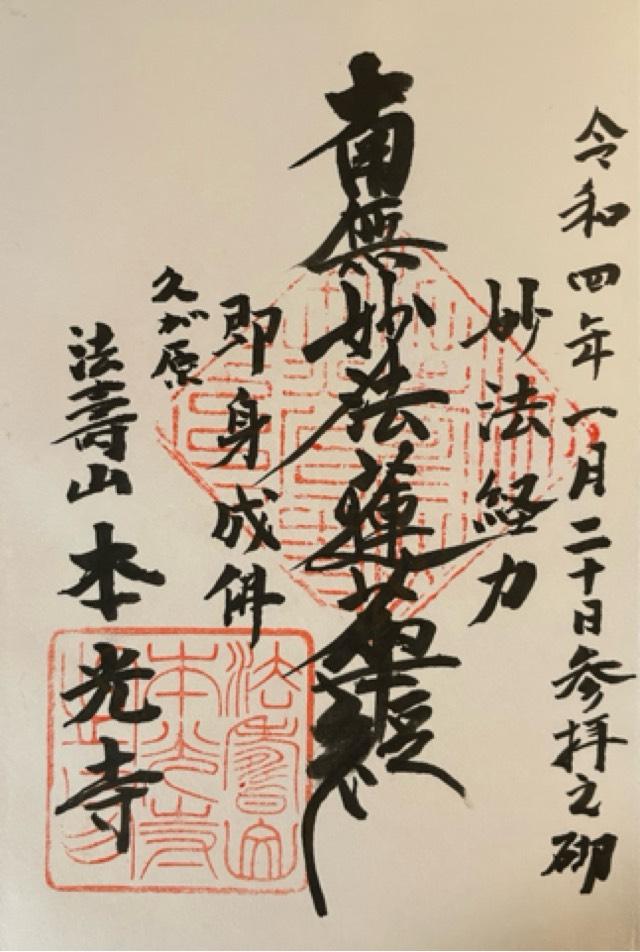 令和四年一月二十日参拝之砌
妙法経力
南無妙法蓮華経
即身成佛
久が原
法壽山本光寺
法壽山
本光寺